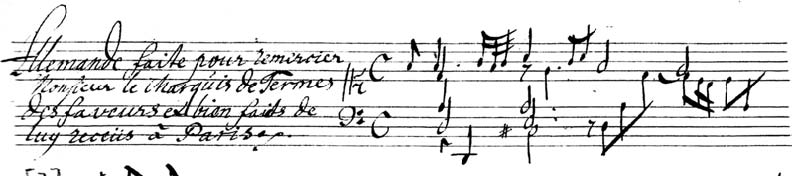 Allemande faite pour remercier
Monsieur le Marquis de Termes
des faveurs et bien faits de
luy receüs à Paris.